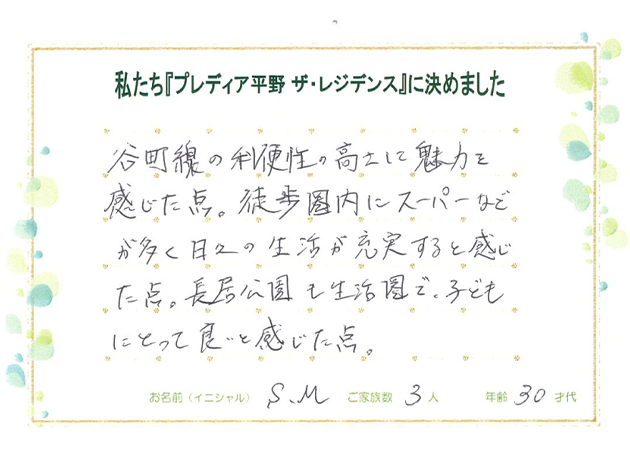 私たち『プレディア平野 ザ・レジデンス』に決めました
谷町線の利便性の高さに魅力を
感じた点。徒歩圏内にスーパーなど
が多く日々の生活が充実すると感じ
た点。長居公園も生活圏で、子ども
にとって良いと感じた点。
お名前（イニシャル） S.M ご家族数 3人 年齢 30才代